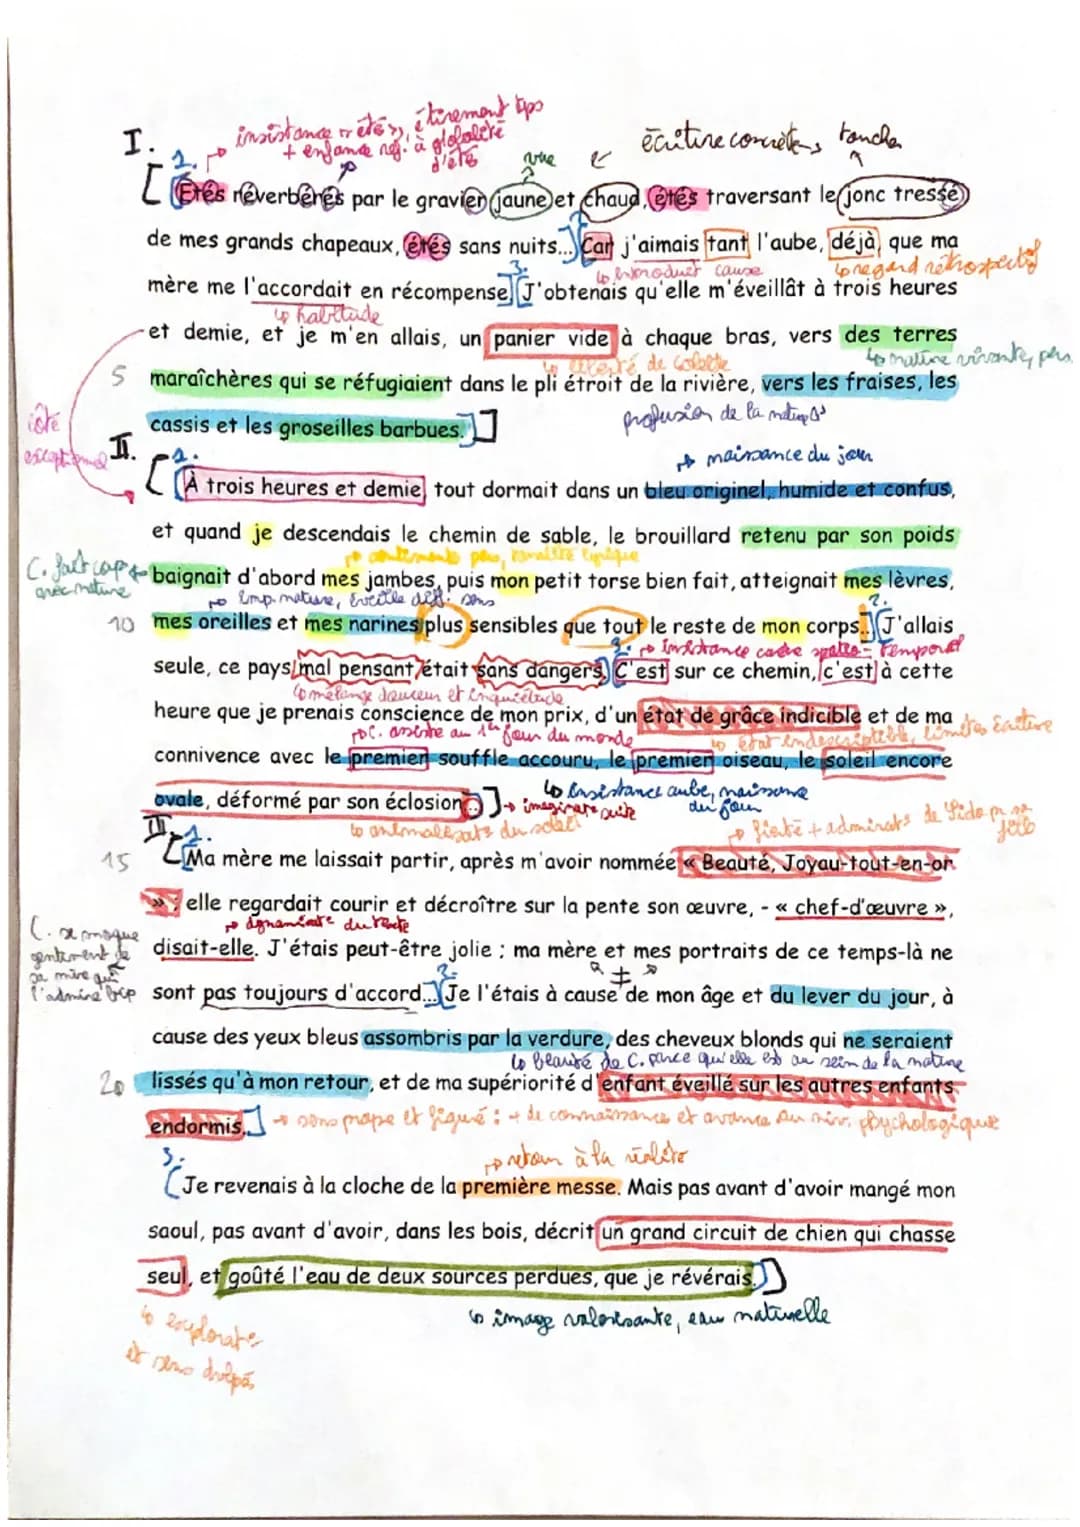 I.
insistance "étés", étirement tps
+ enfance réf. à globalité
d'étés
vue
écriture concrète, toucher
1.
Etés réverbérés par le gravier jaune et chaud, étés traversant le jonc tressé
de mes grands chapeaux, étés sans nuits... Car j'aimais tant l'aube, déjà, que ma
introduit cause
regard rétrospectif
3.
mère me l'accordait en récompense. J'obtenais qu'elle m'éveillât à trois heures
habitude
et demie, et je m'en allais, un panier vide à chaque bras, vers des terres
liberté de Colette
nature vivante, pers.
5
maraîchères qui se réfugiaient dans le pli étroit de la rivière, vers les fraises, les
côté
exceptionnel
cassis et les groseilles barbues.
profusion de la nature
II.
naissance du jour
1.
À trois heures et demie, tout dormait dans un bleu originel, humide et confus,
et quand je descendais le chemin de sable, le brouillard retenu par son poids
C. fait corps
avec nature
baignait d'abord mes jambes, puis mon petit torse bien fait, atteignait mes lèvres,
Emp. nature, éveille diff. sens
2.
10
mes oreilles et mes narines plus sensibles que tout le reste de mon corps... J'allais
3.
insistance cadre spatio-temporel
seule, ce pays mal pensant était sans dangers. C'est sur ce chemin, c'est à cette
mélange douceur et inquiétude
heure que je prenais conscience de mon prix, d'un état de grâce indicible et de ma
C. assiste au 1er jour du monde
état indescriptible, limites écriture
connivence avec le premier souffle accouru, le premier oiseau, le soleil encore
insistance aube, naissance
du jour
ovale, déformé par son éclosion...
imaginaire suite
animalisat° du soleil
III.
fierté + admirat° de Sido pr sa
fille
1.
15
Ma mère me laissait partir, après m'avoir nommée « Beauté, Joyau-tout-en-or
» ; elle regardait courir et décroître sur la pente son œuvre, - « chef-d'œuvre »,
dynamisme du texte
C. se moque
gentiment de
sa mère qui
l'admire bcp
disait-elle. J'étais peut-être jolie ; ma mère et mes portraits de ce temps-là ne
≠
2.
sont pas toujours d'accord... Je l'étais à cause de mon âge et du lever du jour, à
cause des yeux bleus assombris par la verdure, des cheveux blonds qui ne seraient
beauté de C. parce qu'elle est au sein de la nature
20
lissés qu'à mon retour, et de ma supériorité d'enfant éveillé sur les autres enfants
endormis.
sens propre et figuré : + de connaissance et avance au niv. psychologique
3.
retour à la réalité
Je revenais à la cloche de la première messe. Mais pas avant d'avoir mangé mon
saoul, pas avant d'avoir, dans les bois, décrit un grand circuit de chien qui chasse
seul, et goûté l'eau de deux sources perdues, que je révérais.
image valorisante, eau naturelle
explorat°
et sens